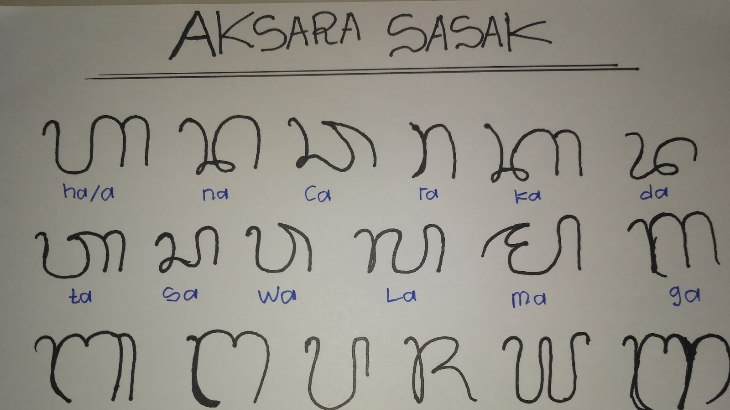 AKSARA SASAK
ᬳ ᬦ ᬘ ᬭ ᬓ ᬤ
ha/a na Ca ra ka da
ᬢ ᬲ ᬯ ᬮ ᬫ ᬕ
ta Sa Wa La ma ga
ᬩ ᬗ ᬧ ᬚ ᬬ ᬜ